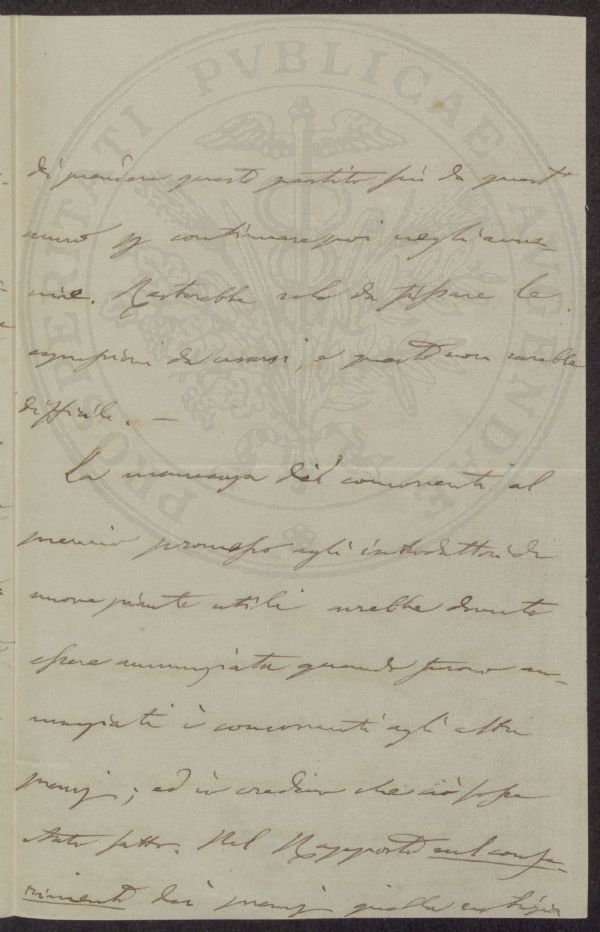 PROSPERITATI PVBLICAE AVGENDAE
di prendere questo partito fin da quest'
anno p continuare poi negli avve-
nire. Resterebbe solo da fissare le
espressioni da usarsi, e questo non sarebbe
difficile. —
La mancanza dei concorrenti al
premio promesso agli introduttori di
nuove piante utili avrebbe dovuto
essere annunziata quando furono an-
nunziati i concorrenti agli altri
premj; ed io credeva che ciò fosse
stato fatto. Nel Rapporto sul confe-
rimento dei premj quella